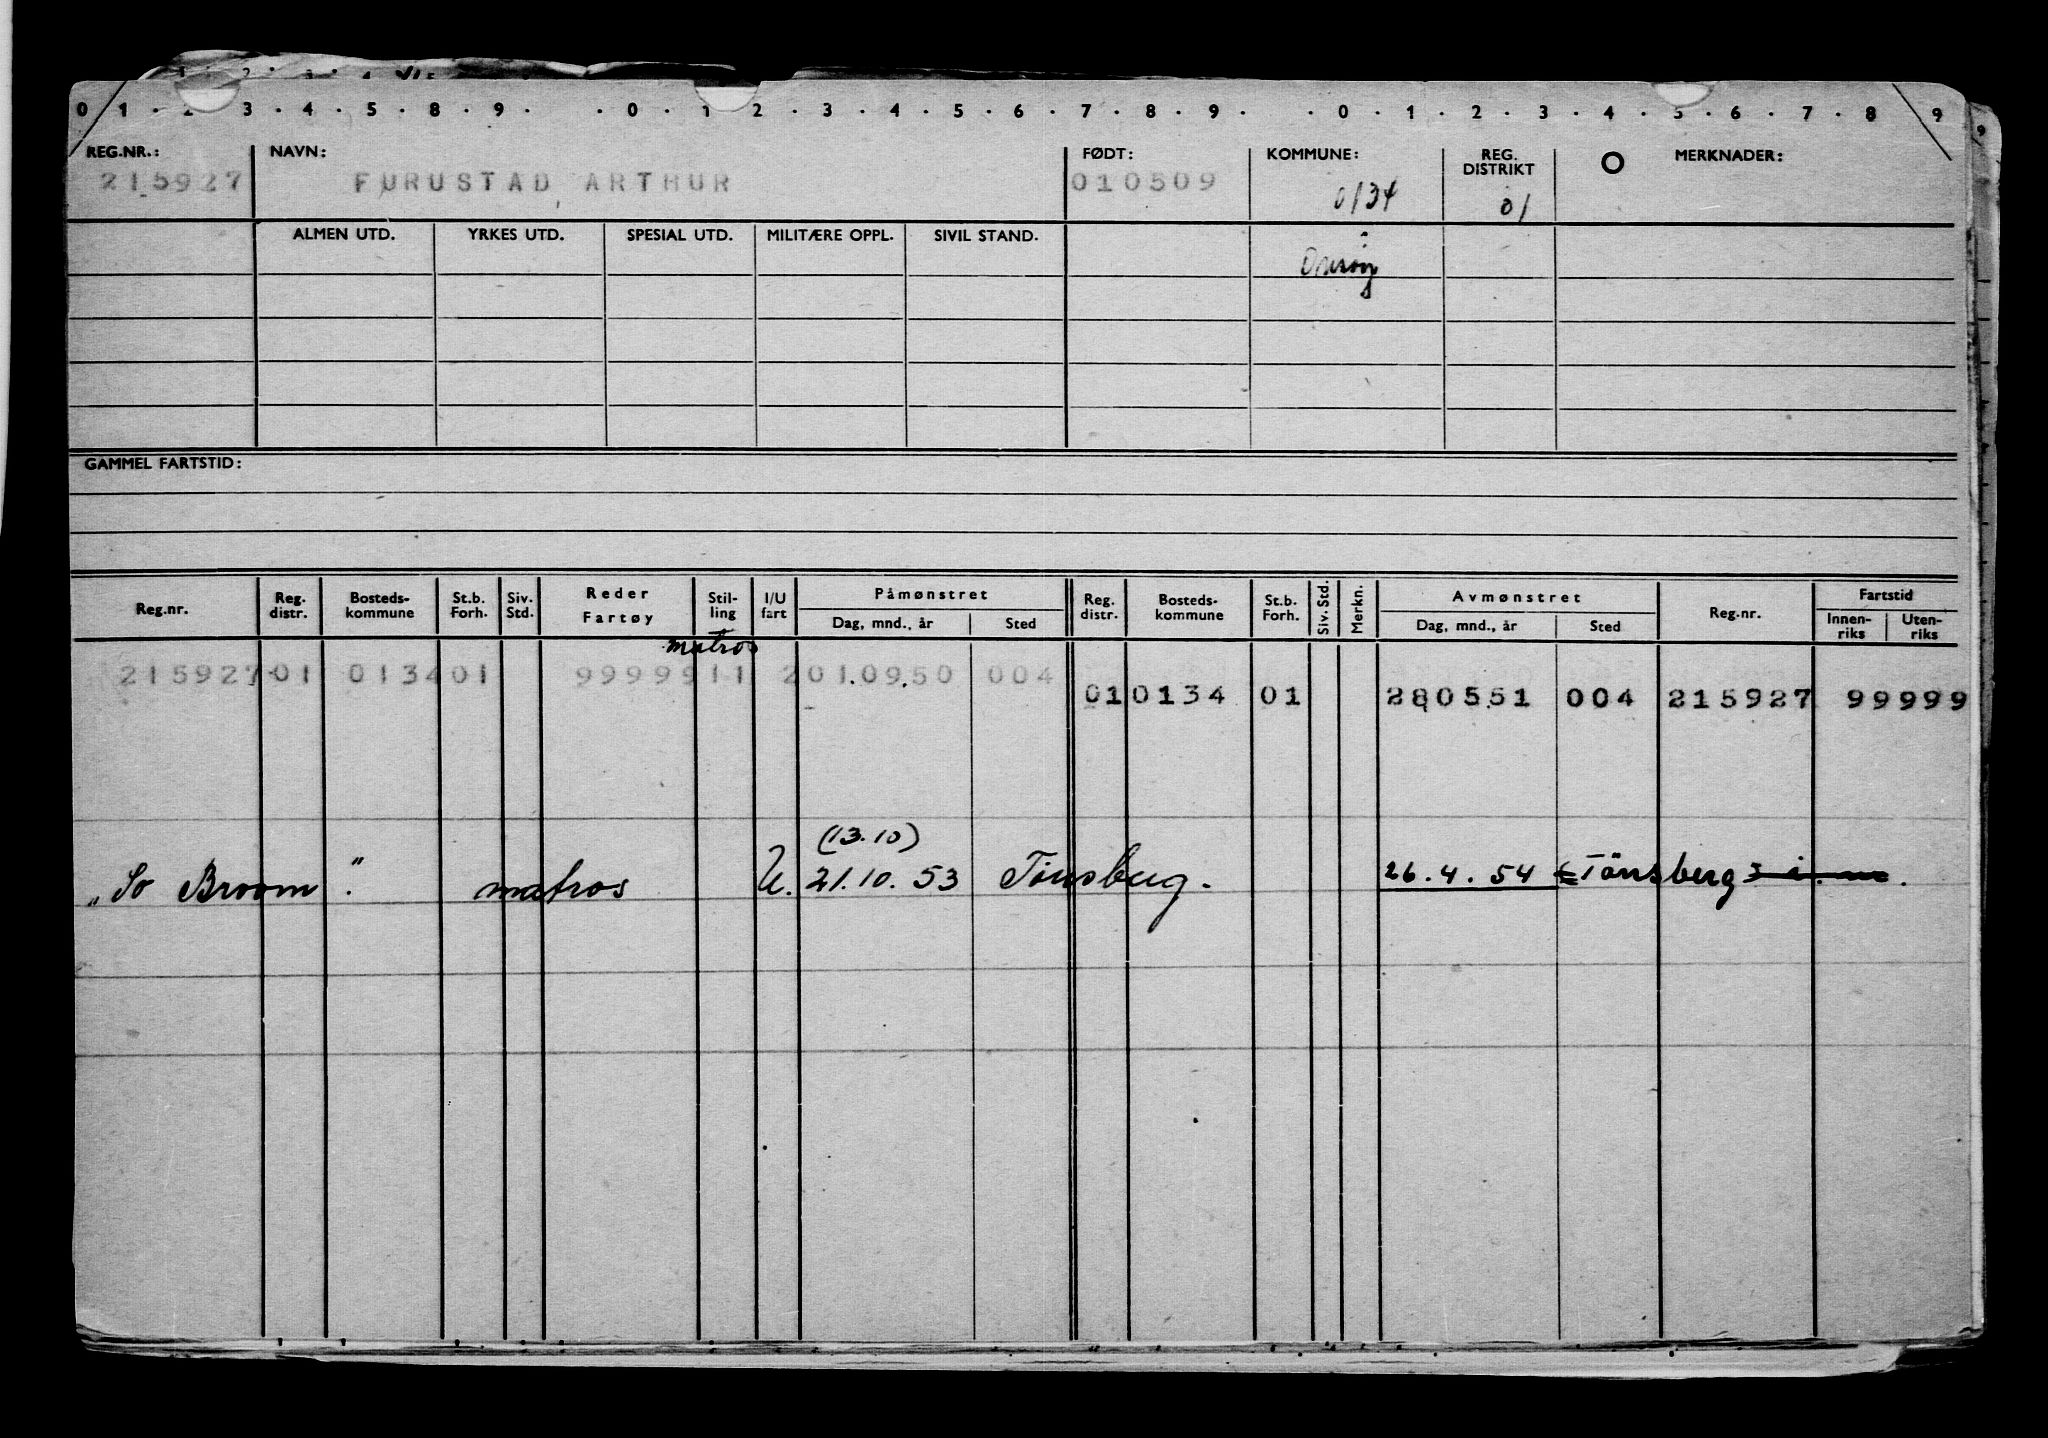 0 1 . 2 . 3 . 4 . 5 . 8 . 9 . . 0 . 1 2 . 3 . 4 . 5 . 6 . 7 . 8 . 9 . . 0 . 1 . 2 . 3 . 4 . 5 . 6 . 7 . 8 9
REG.NR.: NAVN: FØDT: KOMMUNE: REG. DISTRIKT MERKNADER:
215927 FURUSTAD ARTHUR 010509 0134 01
ALMEN UTD. YRKES UTD. SPESIAL UTD. MILITÆRE OPPL. SIVIL STAND.
Onsøy
GAMMEL FARTSTID:
Reg.nr. Reg. distr. Bosteds-kommune St.b. Forh. Siv. Std. Reder Fartøy Stil-ling I/U fart Påmønstret Dag, mnd., år Sted Reg. distr. Bosteds-kommune St.b. Forh. Siv. Std. Merkn. Avmønstret Dag, mnd., år Sted Reg.nr. Fartstid Innen-riks Uten-riks
matros
215927 01 0134 01 99999 11 2 01.09.50 004
01 0134 01 280551 004 215927 99999
(13.10)
"So Broom". matros U. 21.10.53 Tønsberg. 26.4.54 Tönsberg